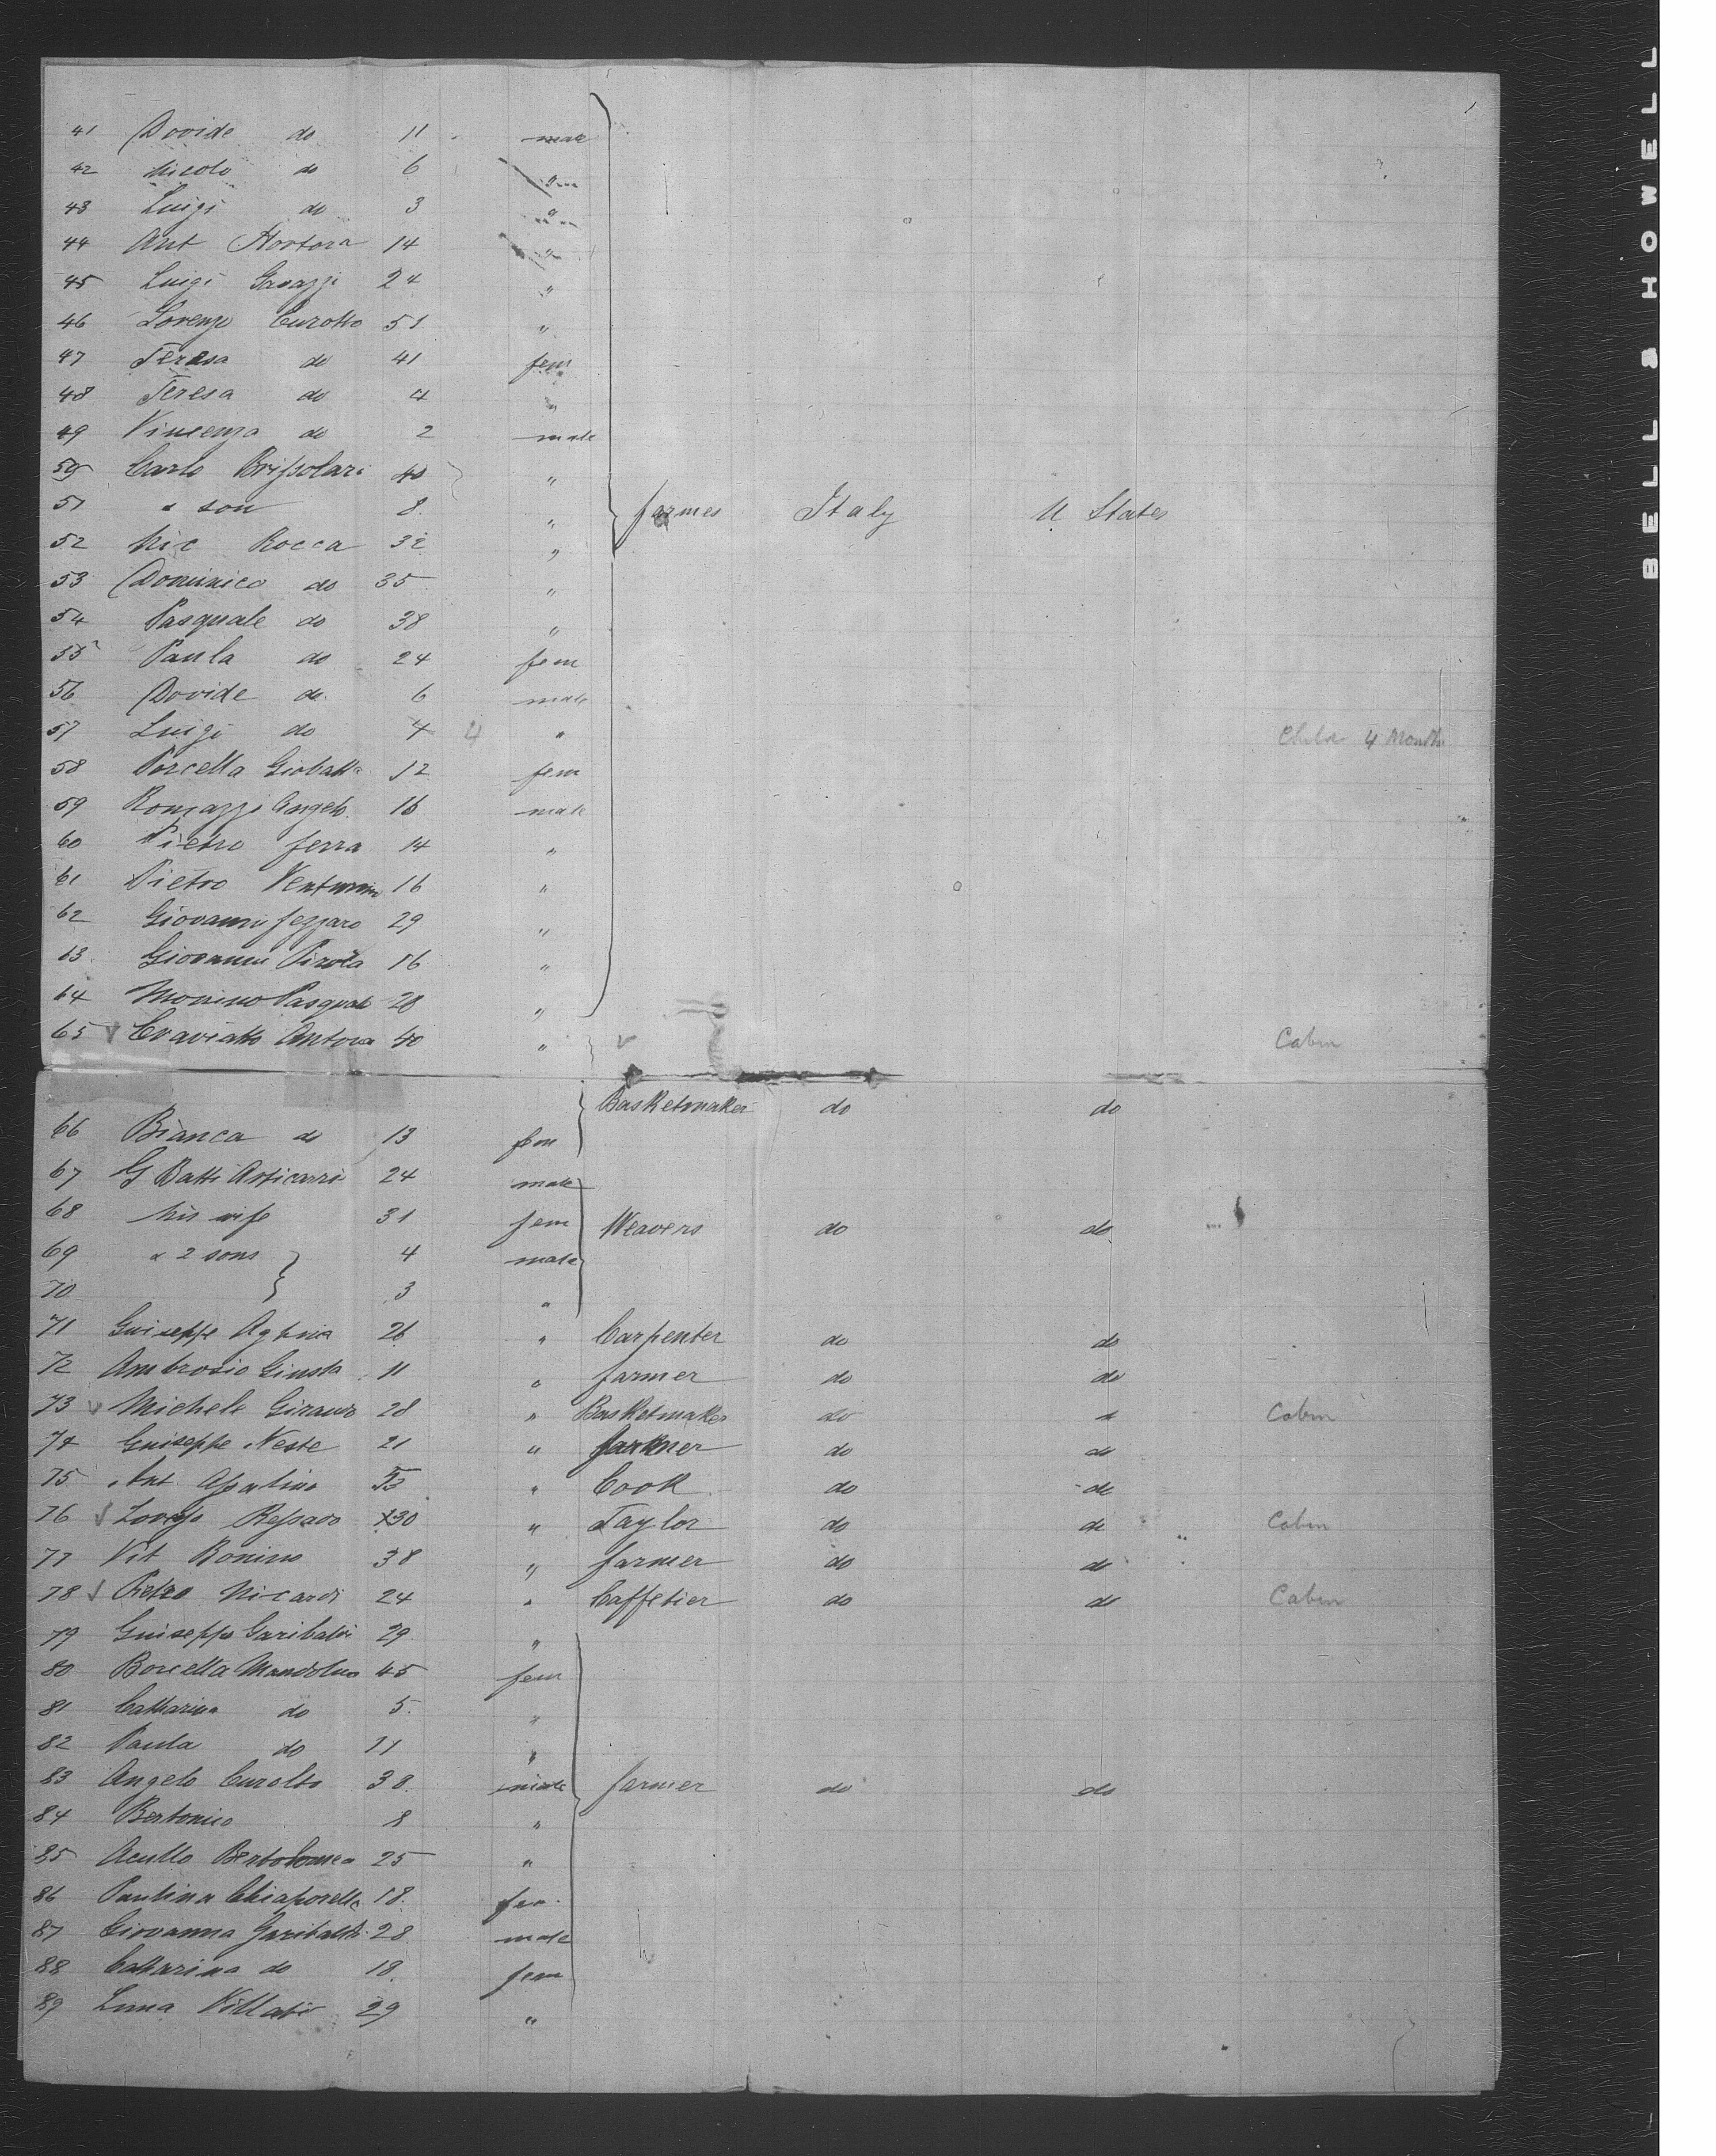 41 Dovide do 11 male
42 Nicolo do 6 "
43 Luigi do 3 "
44 Ant Hortora 14 "
45 Luigi Garazzi 24 "
46 Lorenzo Curotto 51 "
47 Teresa do 41 fem
48 Teresa do 4 "
49 Vincenza do 2 male
50 Carlo 40 "
51 & son 8 " farmes Italy U States
52 Nic Rocca 32 "
53 Dominico do 35 "
54 Pasquale do 38 "
55 Paula do 24 fem
56 Dovide do 6 male
57 Luigi do 4 4 " Child 4 Months
58 Porcella Giobatta 12 fem
59 Romazzi Angelo 16 male
60 Pietro ferra 14 "
61 Pietro 16 "
62 Giovanni 29 "
63 Giovanni 16 "
64 Pasquale 28 "
65 Craviatto Antona 40 " Cabin
Basketmaker do do
66 Bianca do 13 fem
67 G Batti 24 male
68 his wife 31 fem Weavers do do
69 & 2 sons 4 male
70 3 "
71 Guiseppe 26 " Carpenter do do
72 Ambrosio Giusta 11 " farmer do do
73 Michele Giraud 28 " Basketmaker do do Cabin
74 Guiseppe Neste 21 " farmer do do
75 Ant " Cook do do
76 x30 " Taylor do do Cabin
77 Vit Bonino 38 " farmer do do
78 Pietro Nicardi 24 " Caffetier do do Cabin
79 Guiseppe Garibaldi 29 "
80 Borcella 45 fem
81 Cattarina do 5 "
82 Paula do 11 "
83 Angelo Curolto 38 male farmer do do
84 Bertonico 8 "
85 Acullo Bertolomea 25 "
86 Paulina Chiaporella 18 fem
87 Giovanna Garibaldi 28 male
88 Cattarina do 18 fem
89 Luna 29 "
BELL & HOWELL